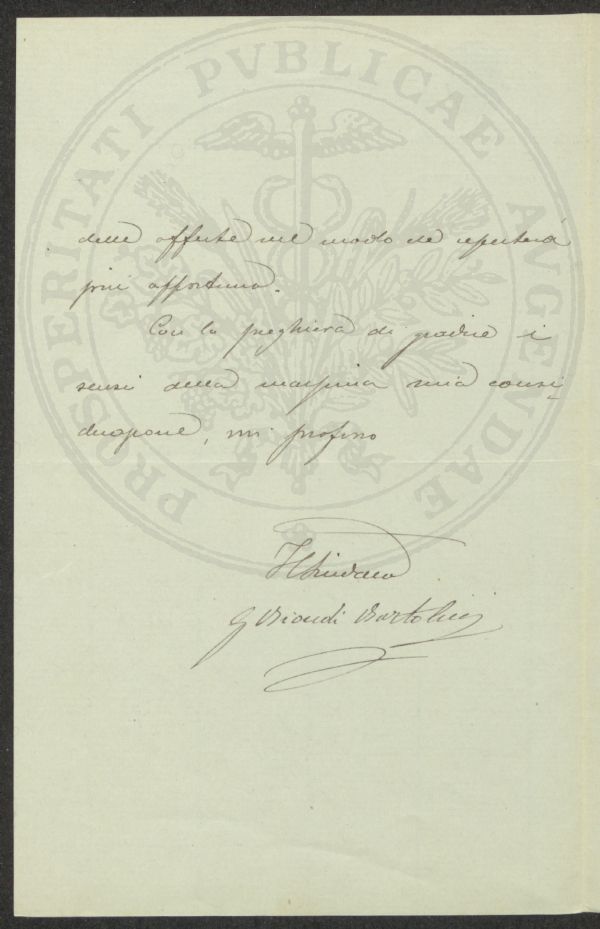 PROSPERITATI PVBLICAE AVGENDAE
delle offerte nel modo che reputerà
più opportuno.
Con la preghiera di gradire i
sensi della massima mia consi-
derazione, mi professo
Il Sindaco
G Biondi Bartolini